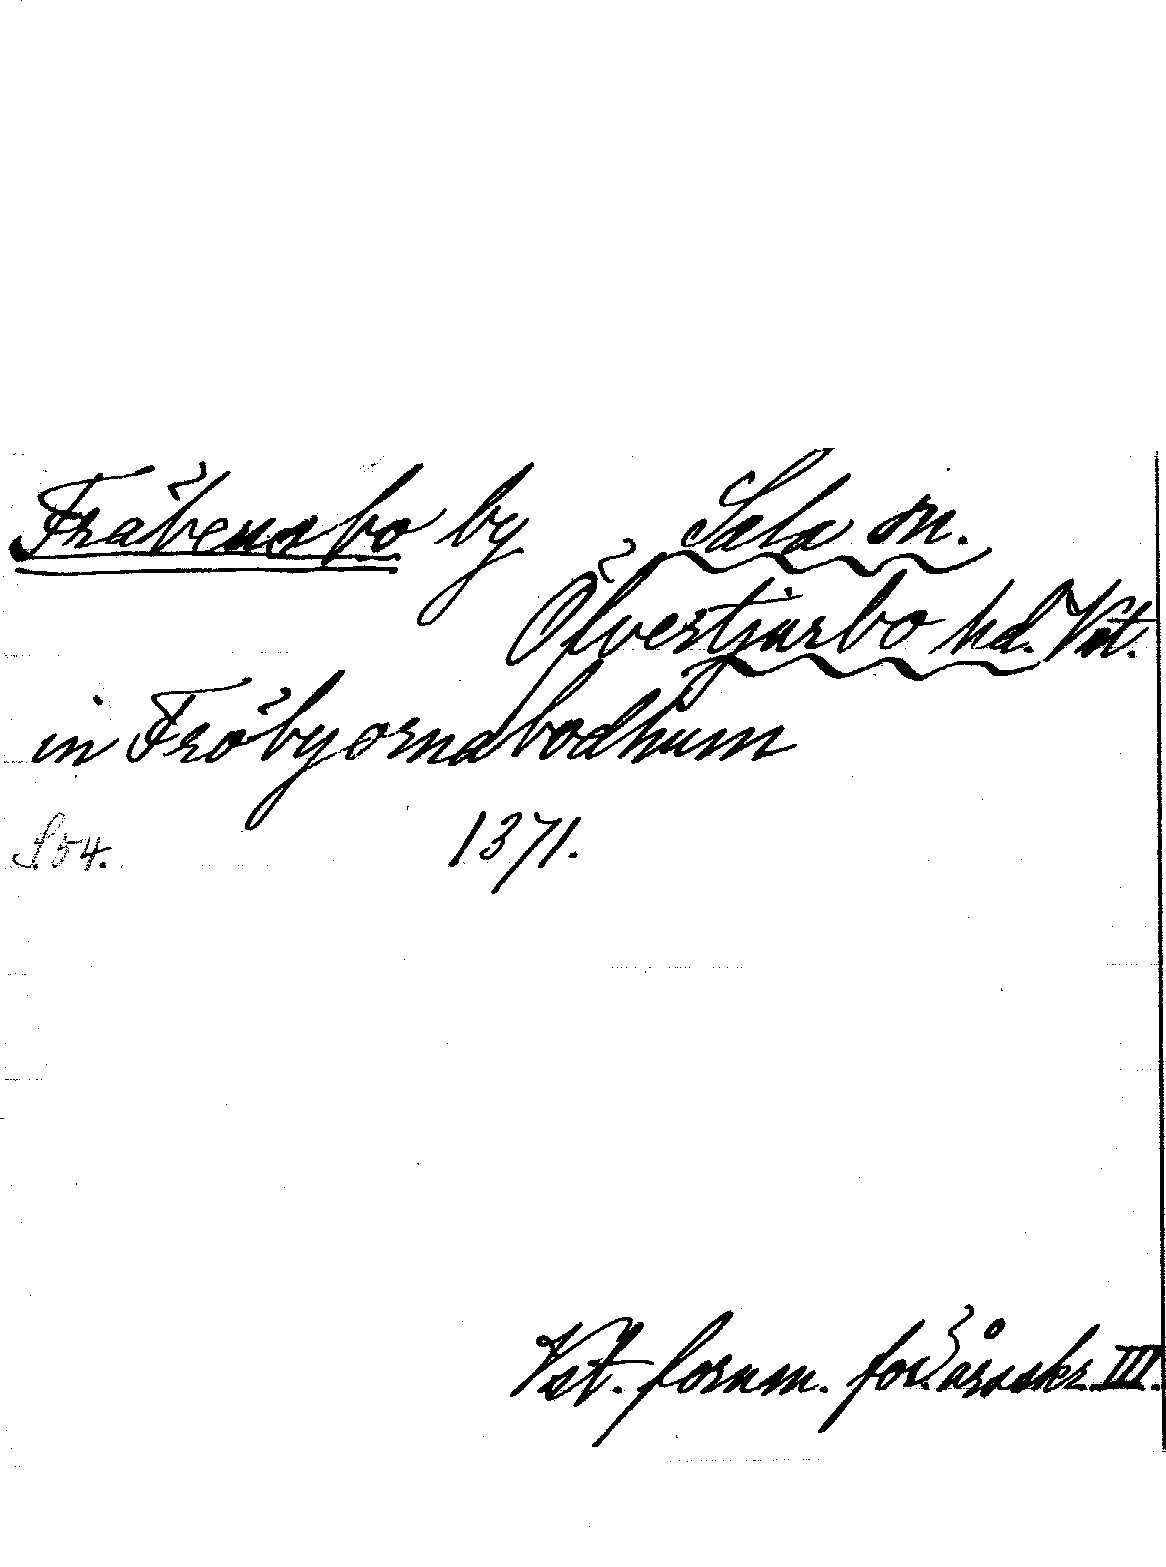 Fräbensbo by Sala sn.
Öfvertjurbo hd. Vst.
in Fröbyornabodhum
S. 54. 1371.
Vst. fornm. för. årsskr. III.